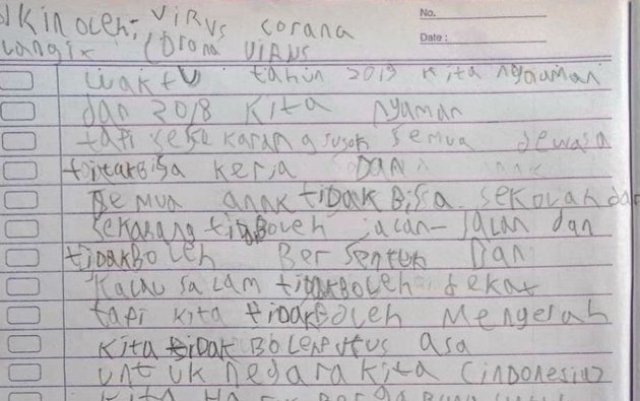 No.
Date :
ikin oleh: VIRUS corana
Langix Corona VIRUS
waktu tahun 2019 kita nyaman
dan 2018 KITA nyaman
tapi sekarang susah semua dewasa
tidakbisa kerja DAN
semua anak tidak Bisa sekolah dan
sekarang tidBoleh jalan-jalan dan
tidakBoleh Bersentuh Dan
Kalau salam tidakBoleh dekat
tapi kita tidakBoleh Mengerah
kita tidak Boleh putus asa
untuk negara kita (indonesia)